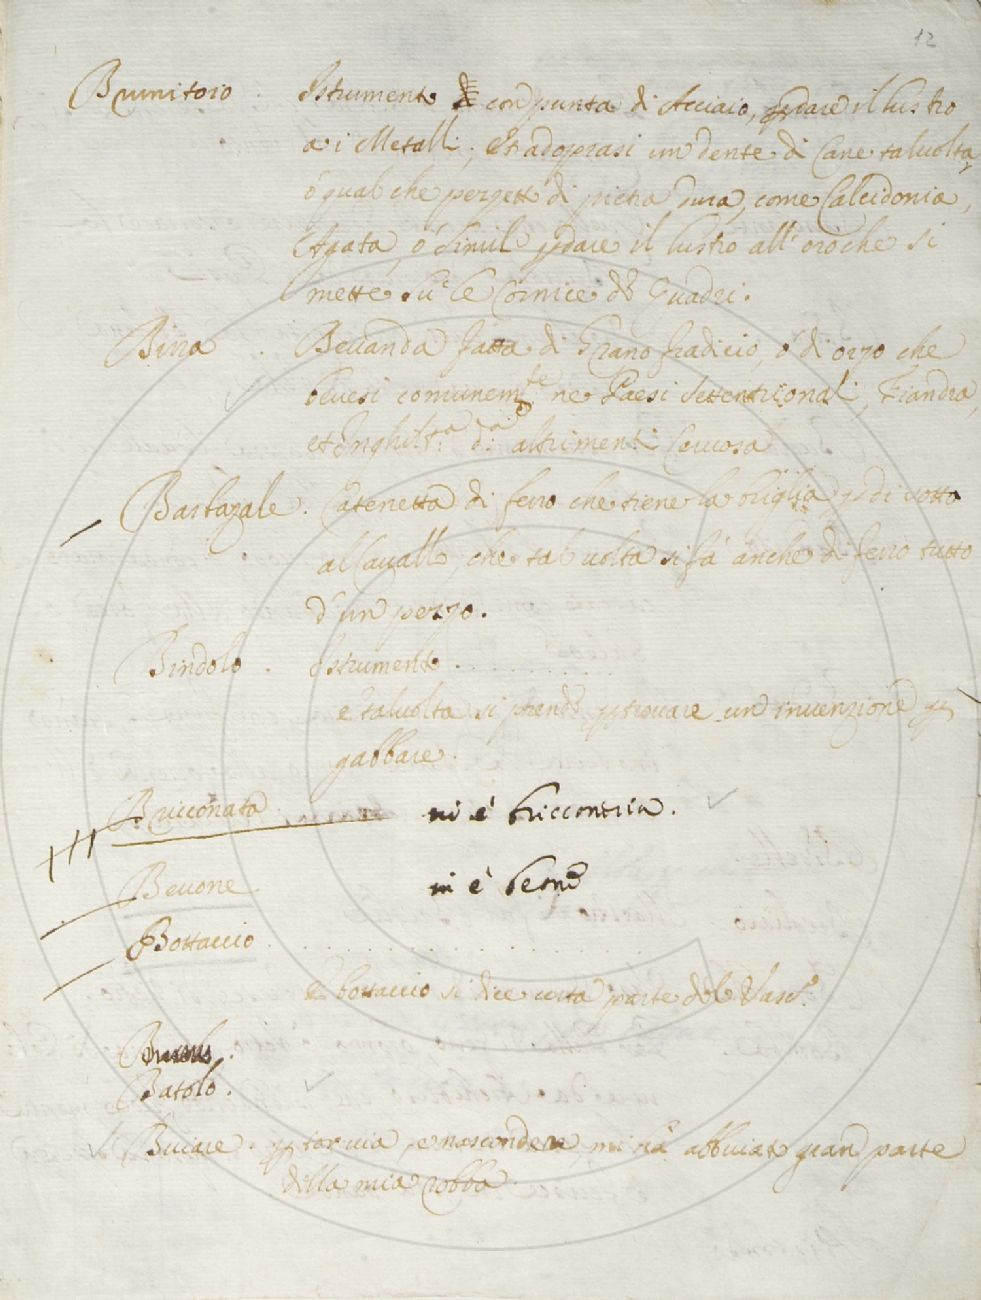 12
Brunitoio . Istrumento con punta di Acciaio, p dare il lustro
a i Metalli; et adoprasi un dente di Cane talvolta,
ò qual che pezzett di pietra dura, come Calcidonia,
Agata, ó Simil p dare il lustro all' oro che si
mette su le Cornice de Quadri.
Birra . Bevanda fatta di Grano fradicio, ó di orzo che
bevesi comunem.te ne Paesi Settentrionali, Fiandra,
et Inghilt.a d.a altrimenti Cervosa
Barbazale . Catenetta di ferro che tiene la briglia p di sotto
al Cavallo, che tal volta si fà anche di ferro tutto
d'un pezzo.
Bindolo . Istrumento . . . . . .
e talvolta si prende p trovare un invenzione p
gabbare.
Bricconata vi è bricconeria.
Bevone vi è
Bottaccio . . . . . . . .
E bottaccio si dice certa parte del
Batolo.
Buiare . p tor via, e nascondere, mi hà abbuiato gran parte
della mia robba